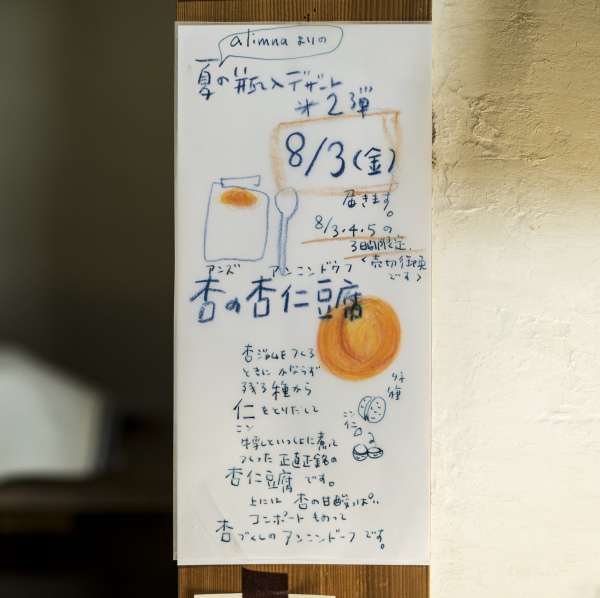 alimna よりの
夏の瓶入デザート
*2弾
8/3(金)
届きます。
8/3・4・5の
3日間限定
<売切御免
です>
アンズ アンニンドウフ
杏の杏仁豆腐
杏ジャムをつくる
ときに かならず
残る種から
仁をとりだして
ニン
牛乳といっしょに煮て
つくった 正真正銘の
杏仁豆腐 です。
上には 杏の甘酸っぱい
コンポート ものって
杏づくしの アンニンドーフ です。
タネ
種
ニン
仁